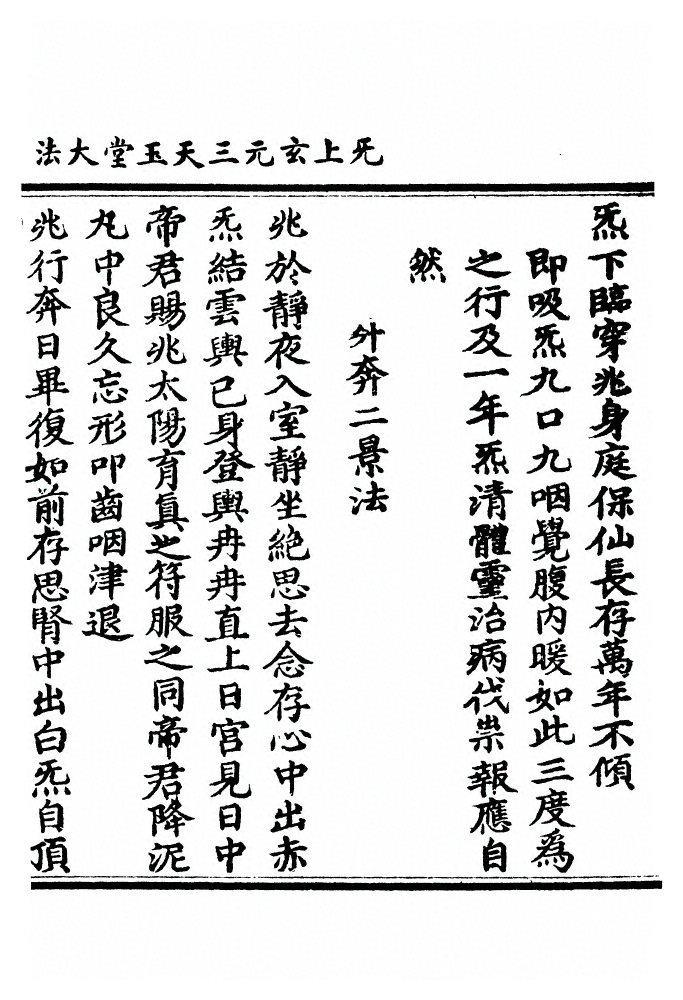 旡上玄元三天玉堂大法
炁下臨穿兆身庭保仙長存萬年不傾
即吸炁九口九咽覺腹内暖如此三度爲
之行及一年炁清體靈治病伐祟報應自
然
外奔二景法
兆於靜夜入室靜坐絶思去念存心中出赤
炁結雲輿已身登輿冉冉直上日宫見日中
帝君賜兆太陽育眞之符服之同帝君降泥
丸中良久忘形叩齒咽津退
兆行奔日畢復如前存思腎中出白炁自頂